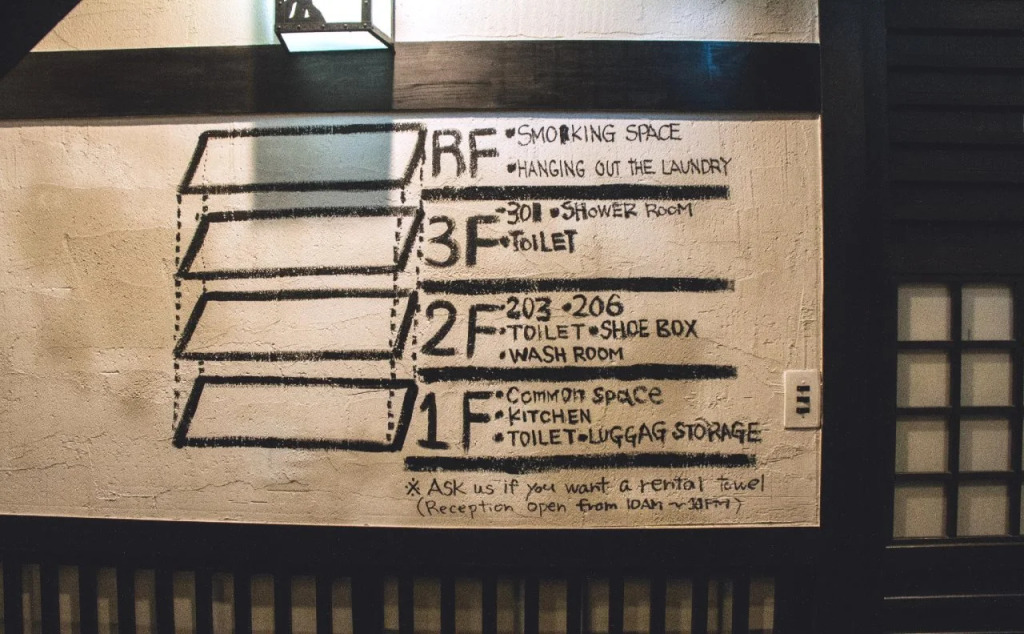 RF •SMOKING SPACE
•HANGING OUT THE LAUNDRY
3F •301 •SHOWER ROOM
•TOILET
2F •203 •206
•TOILET •SHOE BOX
•WASH ROOM
1F •COMMON SPACE
•KITCHEN
•TOILET •LUGGAG STORAGE
※ Ask us if you want a rental towel
(Reception open from 10AM ~ 11PM)